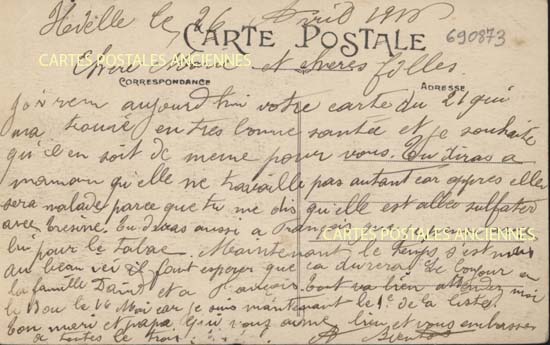 Hévelle le 26 Avril 1915
CARTE POSTALE
690873
CARTES POSTALES ANCIENNES
Chère et chères filles
CORRESPONDANCE
ADRESSE
J'ai reçu aujourd'hui votre carte du 21 qui
ma trouvé en tres bonne santée et je souhaite
qu'il en soit de meme pour vous. Tu diras a
maman qu'elle ne travaille pas autant car apres elle
sera malade parce que tu me dis qu'elle est allée sulfater
avec Tu diras aussi a
CARTES POSTALES ANCIENNES
lui pour le tabac. Maintenant le temps s'est mis
au beau il faut esperer que ca durera. Le bonjour en
la famille David et a tout va bien attendez moi
le 13 ou le 14 Mai car je suis maintenant le 1e de la liste
bon mari et papa qui vous aime bien et vous embrasse
a toutes le trois. A bientot